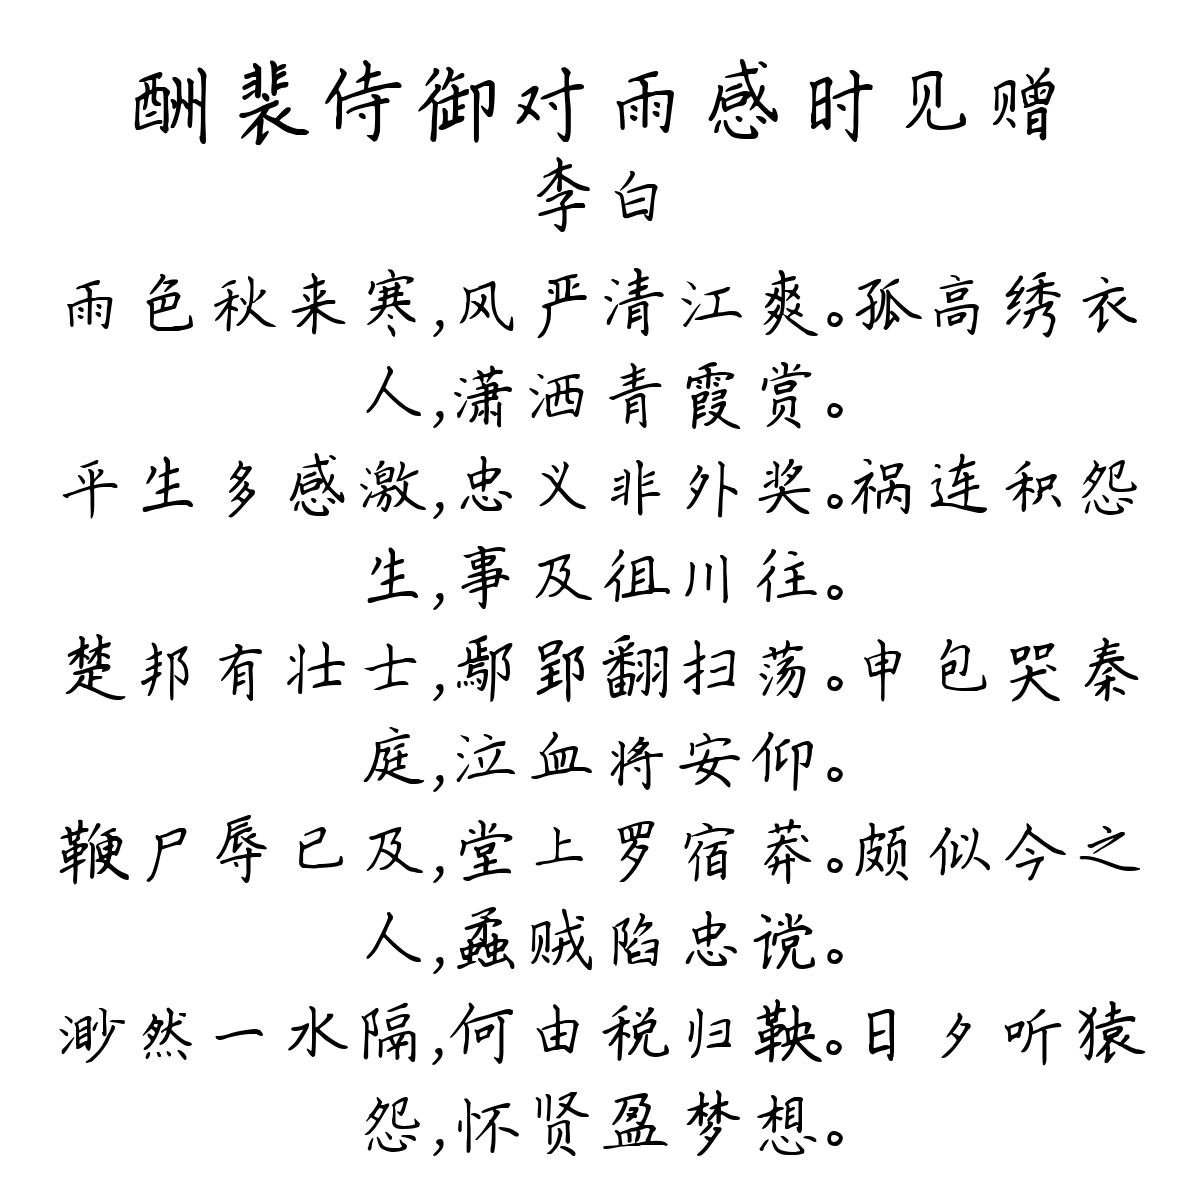 酬裴侍御对雨感时见赠
李白
雨色秋来寒,风严清江爽。孤高绣衣
人,潇洒青霞赏。
平生多感激,忠义非外奖。祸连积怨
生,事及徂川往。
楚邦有壮士,鄢郢翻扫荡。申包哭秦
庭,泣血将安仰。
鞭尸辱已及,堂上罗宿莽。颇似今之
人,蟊贼陷忠谠。
渺然一水隔,何由税归鞅。日夕听猿
怨,怀贤盈梦想。